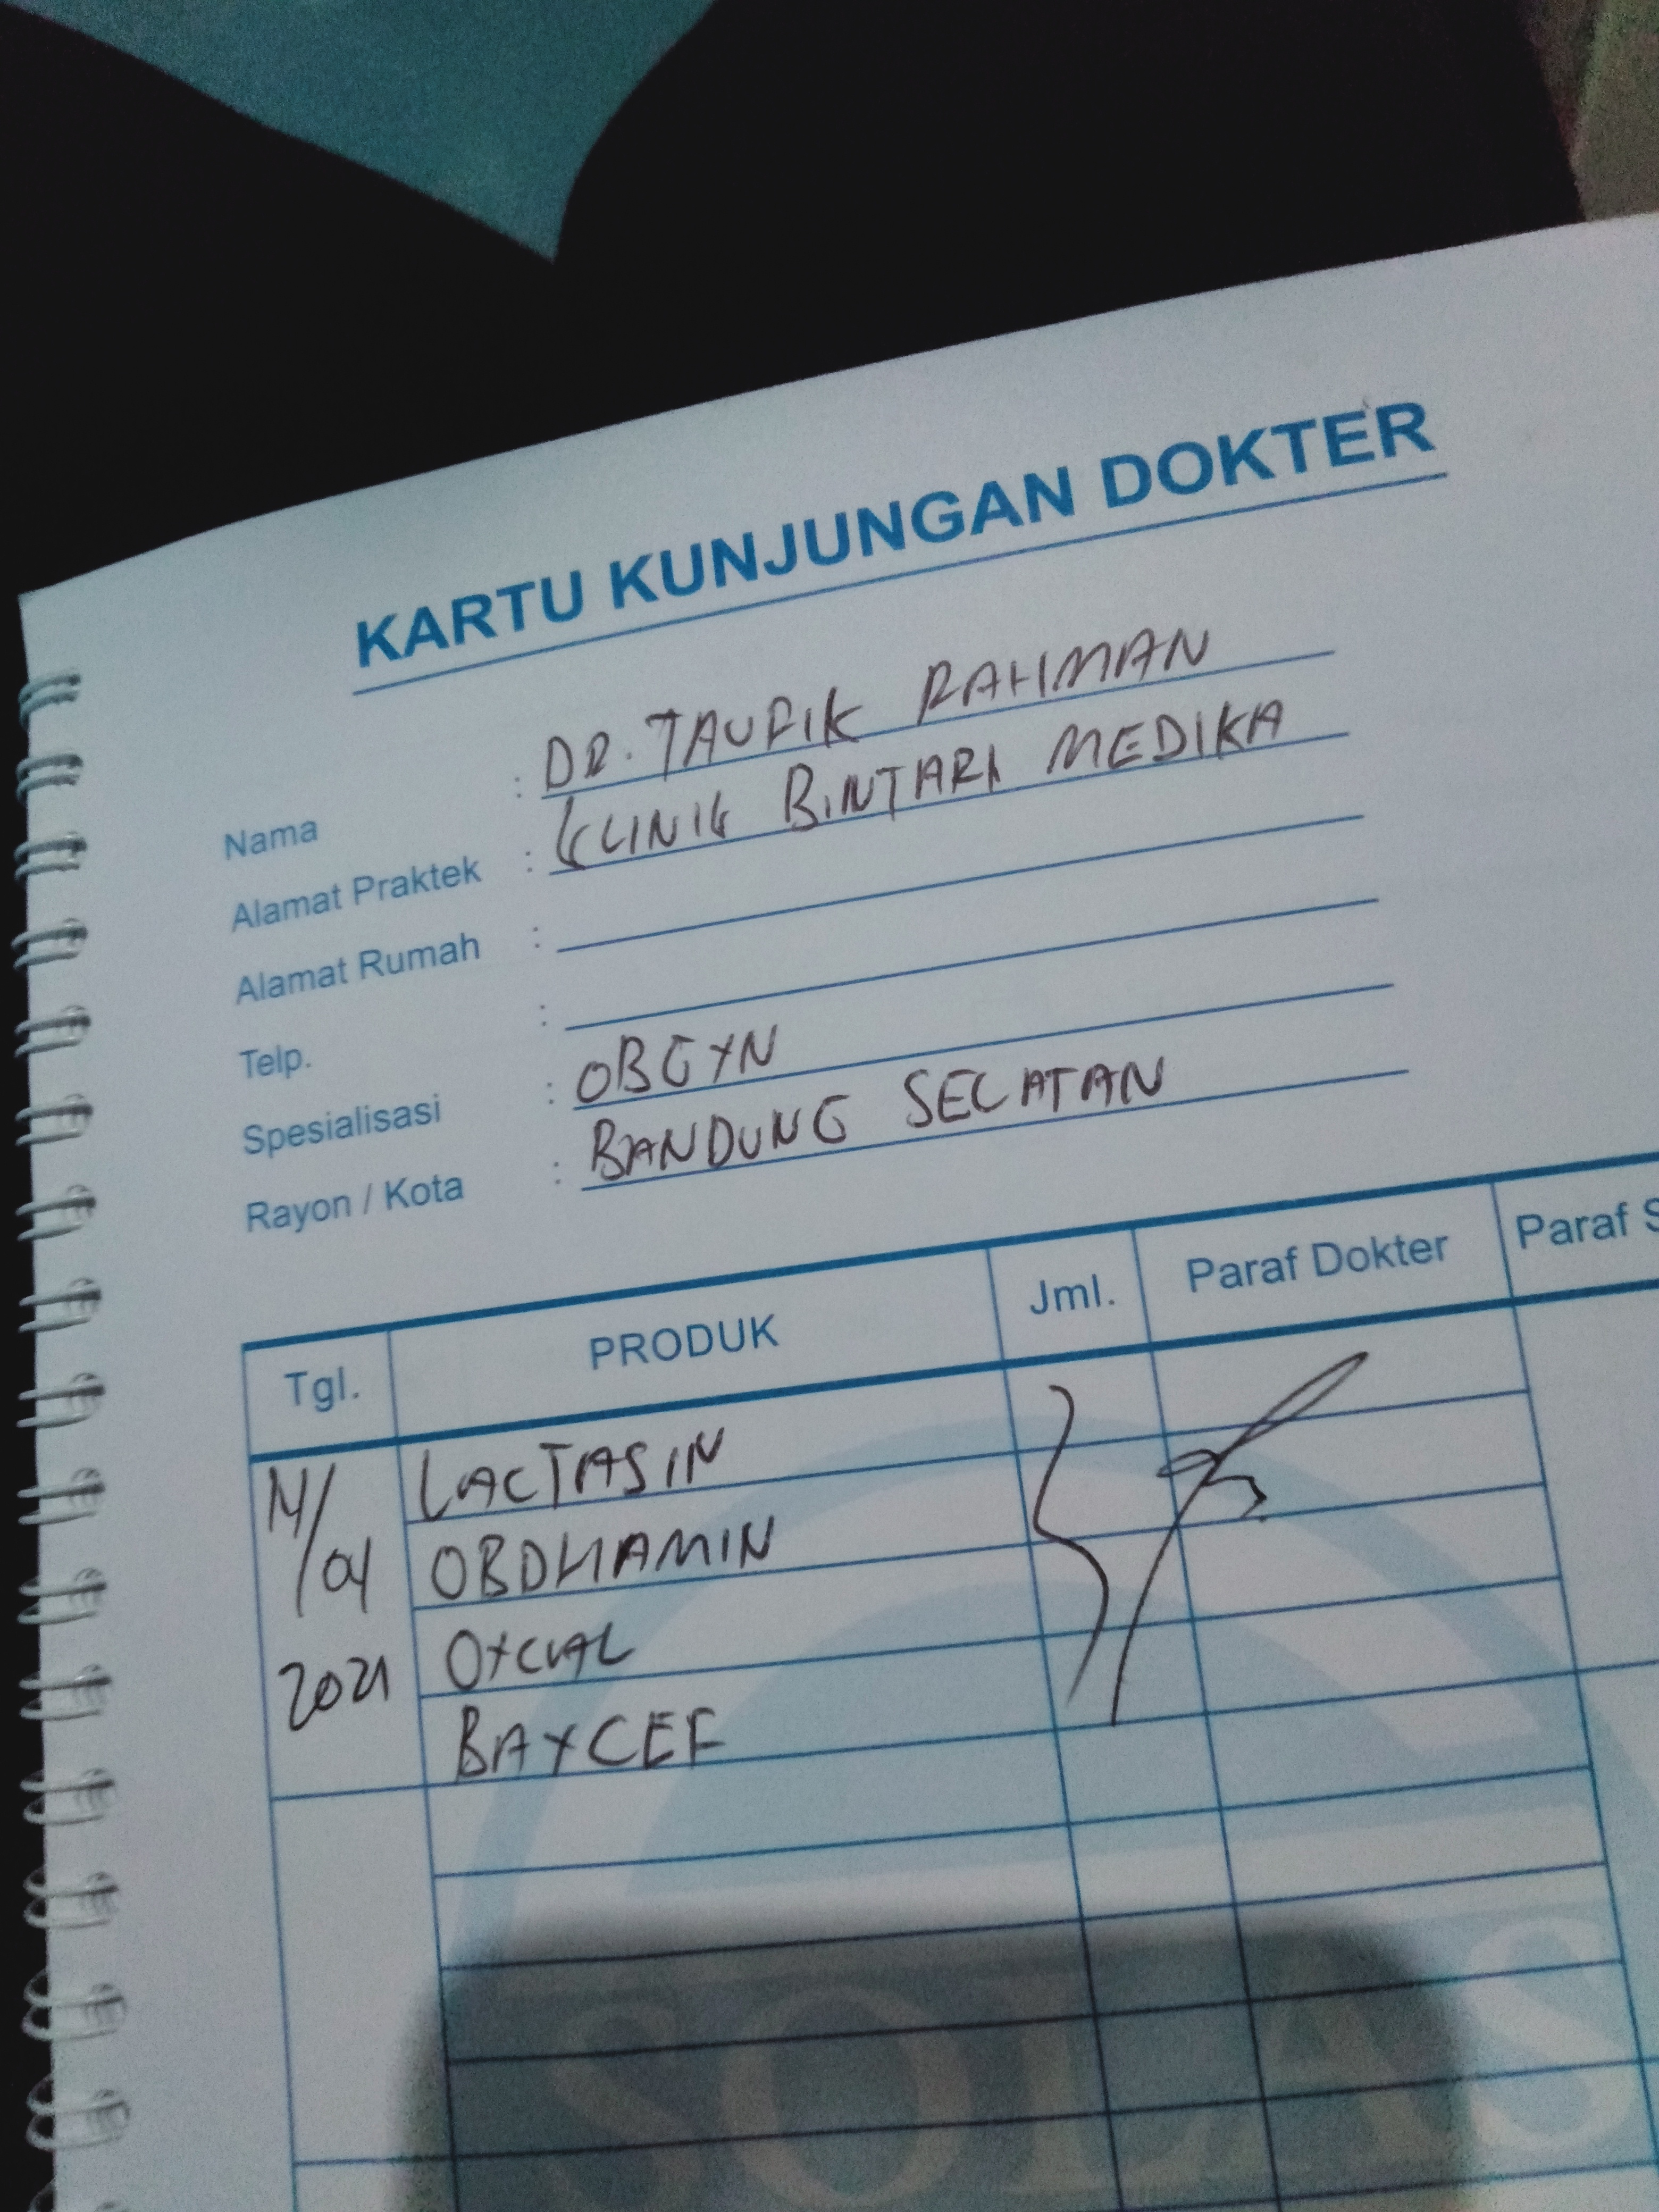 KARTU KUNJUNGAN DOKTER
Nama : DR. TAUFIK RAHMAN
Alamat Praktek : KLINIK BINTARI MEDIKA
Alamat Rumah :
Telp. :
Spesialisasi : OBGYN
Rayon / Kota : BANDUNG SELATAN
Tgl. PRODUK Jml. Paraf Dokter Paraf S
LACTASIN
OBDHAMIN
OXCVAL
2021 BAYCEF
SOLAS